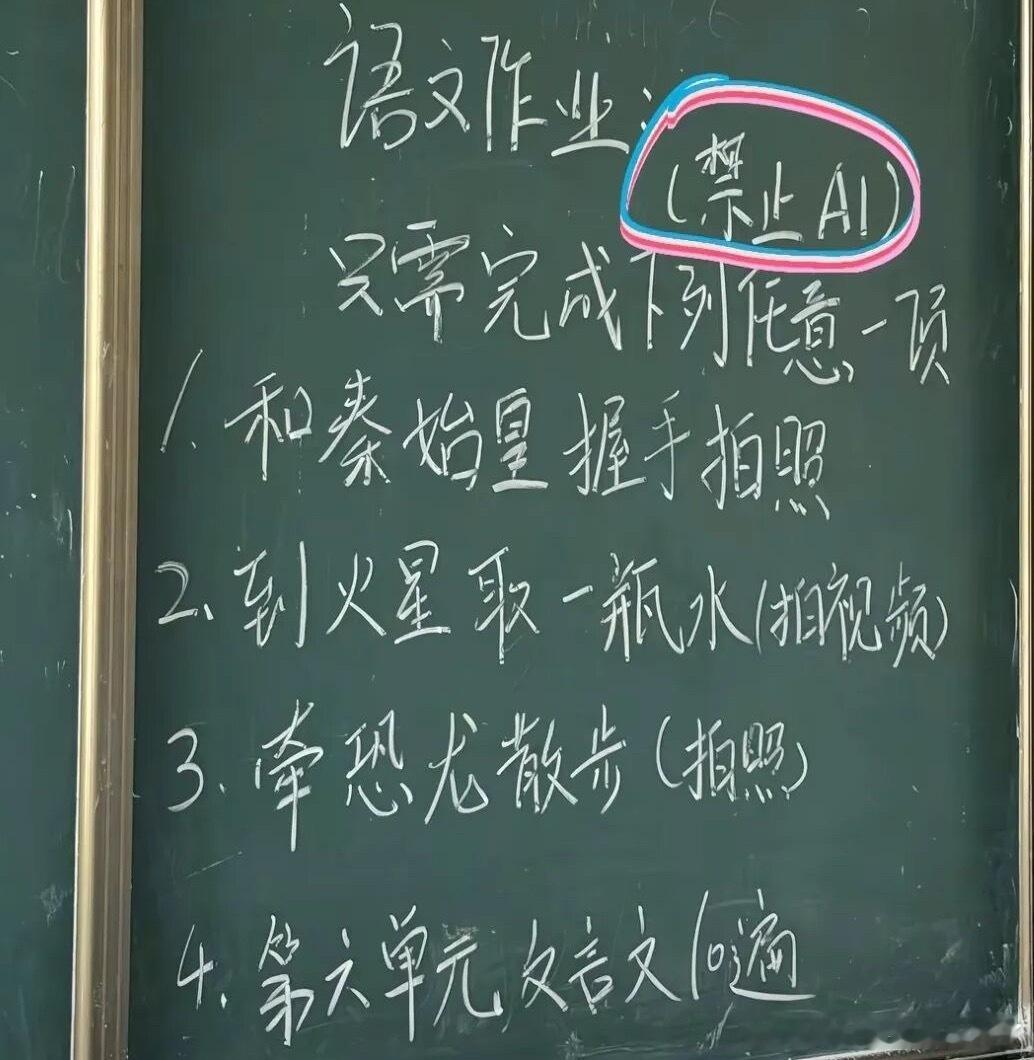 语文作业:
(禁止AI)
只需完成下列任意一项
1. 和秦始皇握手拍照
2. 到火星取一瓶水(拍视频)
3. 牵恐龙散步(拍照)
4. 第六单元文言文10遍